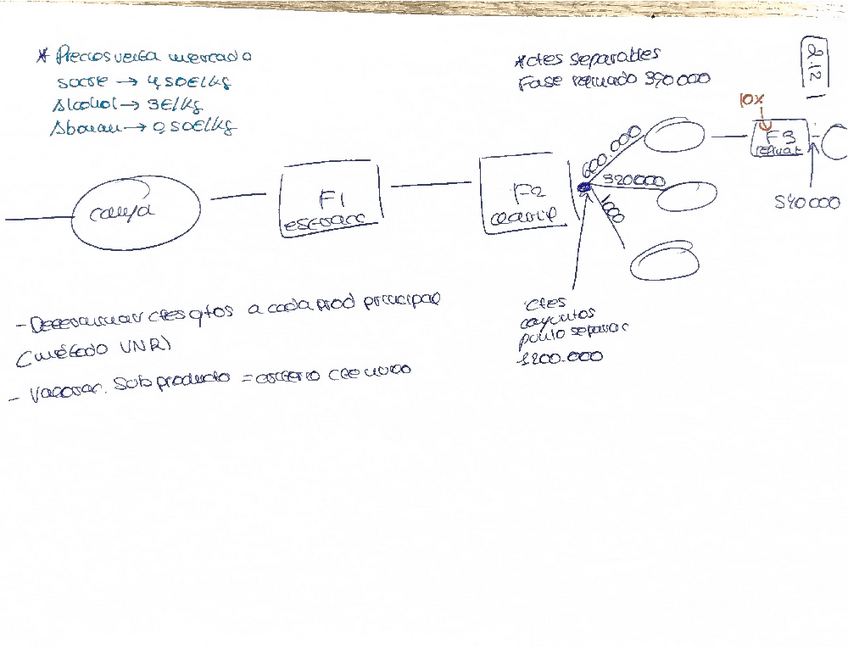 * Precios venta mercado
sucre → 4,50€/kg
Alcohol → 3€/kg
Abonan → 0,50€/kg
*ctes separables
Fase refinado 390000
2.12
10%
F3
refinat
540000
600.000
320000
1000
canya
F1
escoacc
F2
ctes
conjuntos
punto separac
1200.000
- Determinar ctes qtos a cada prod principal
(método VNR)
- Valorac. Subproducto = criterio cte nulo